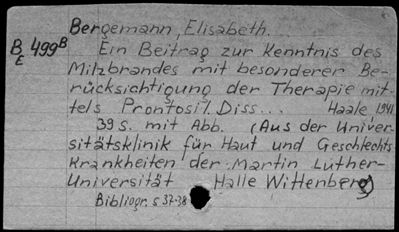 Bergemann, Elisabeth.
B 499B
E
Ein Beitrag zur Kenntnis des
Milzbrandes mit besonderer Be-
rücksichtigung der Therapie mit-
tels Prontosil. Diss... Haale 1941
39 s. mit Abb. (Aus der Univer-
sitätsklinik für Haut und Geschlechts
Krankheiten der Martin Luther-
Universität Halle Wittenberg)
Bibliogr. s 37-38